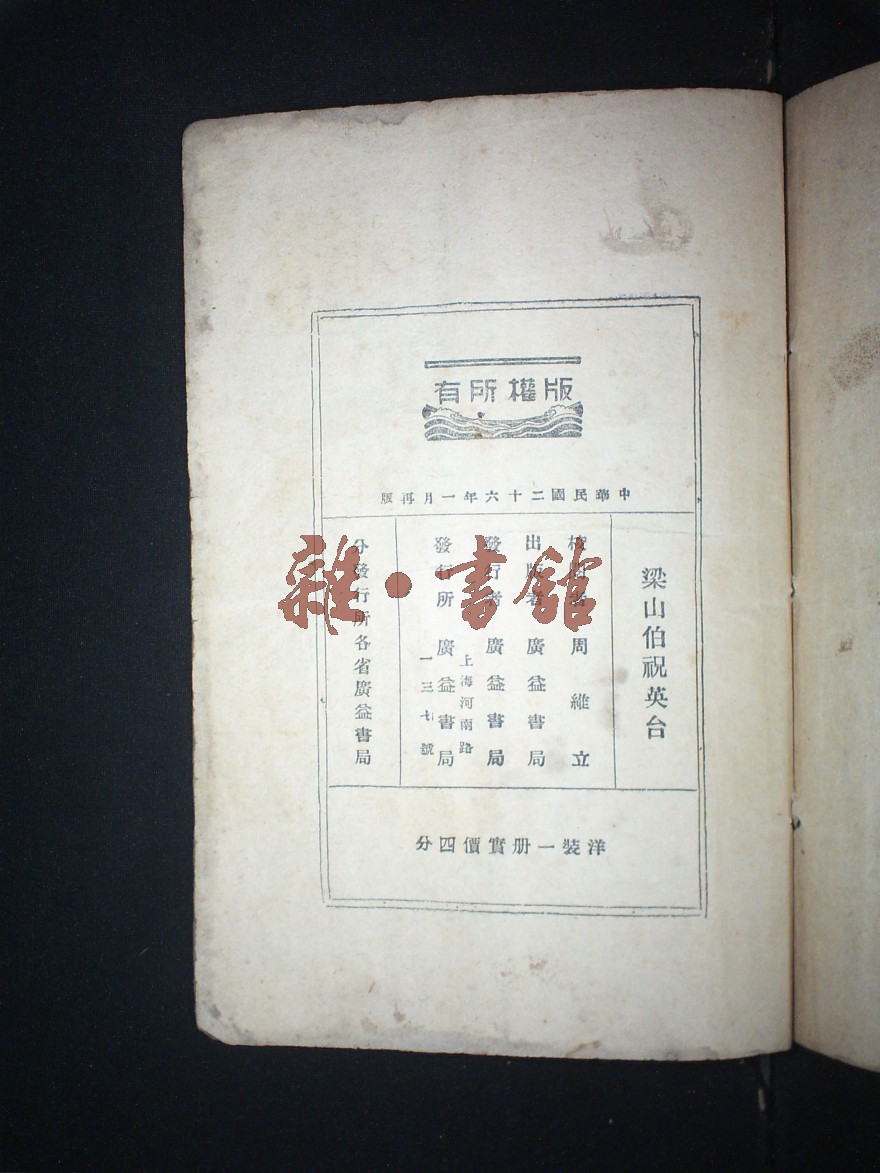 版權所有
中華民國二十六年一月再版
梁山伯祝英台
校閱者 周維立
出版者 廣益書局
發行者 廣益書局
上海河南路
發行所 廣益書局
一三七號
分發行所各省廣益書局
洋裝一册實價四分
雜·書館